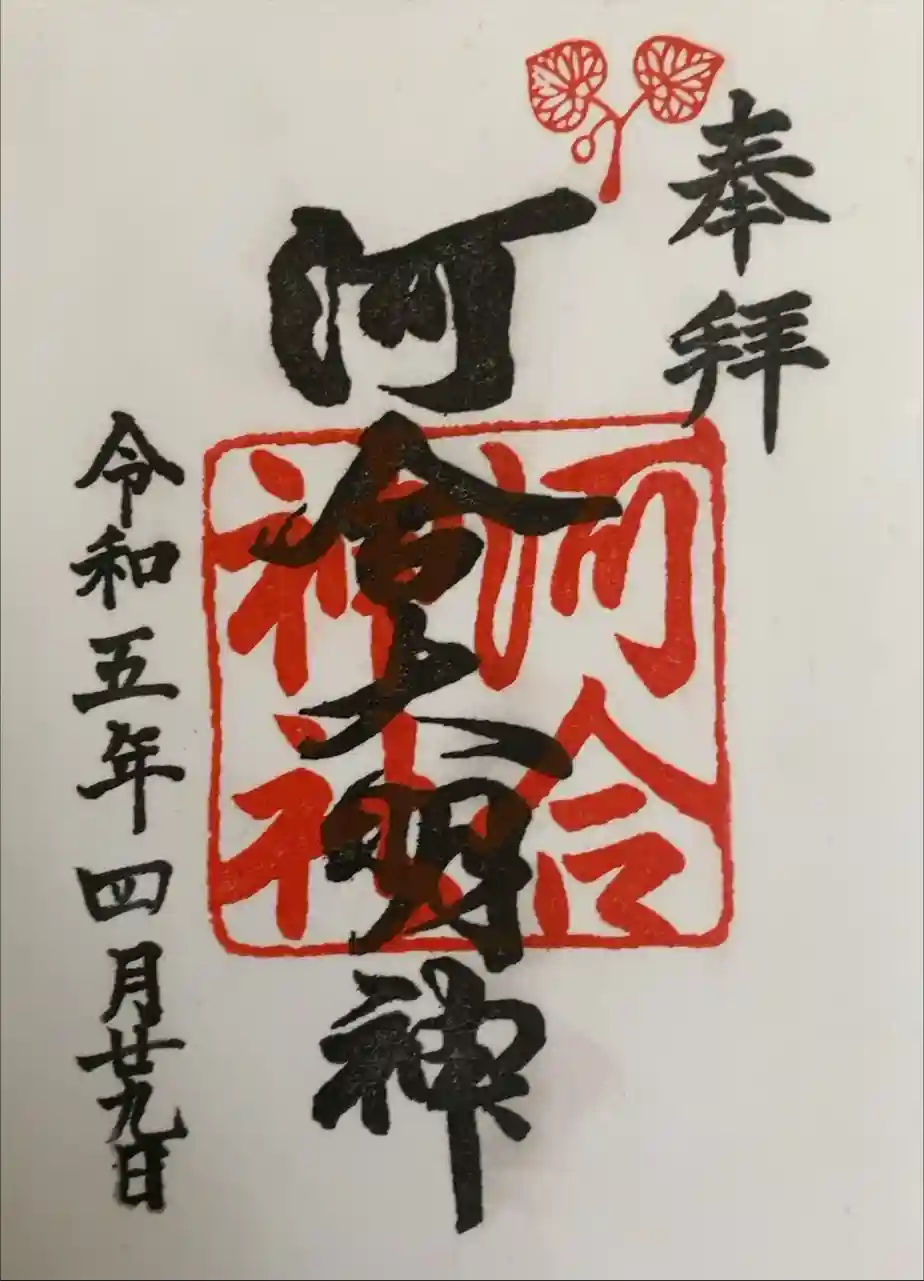 奉拝
河合大明神
河合
神社
令和五年四月廿九日